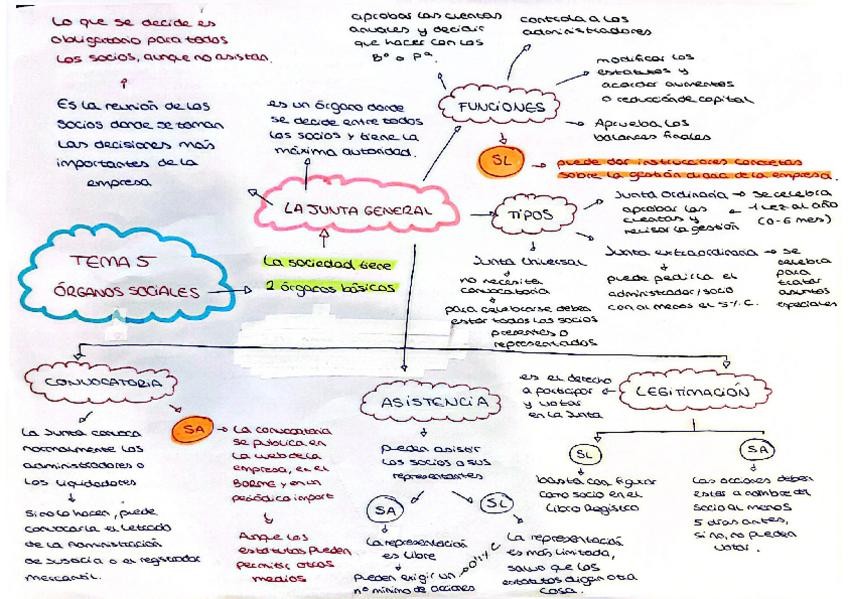 Lo que se decide es
obligatorio para todos
los socios, aunque no asistan.
Es la reunión de los
socios donde se toman
las decisiones más
importantes de la
empresa
es un órgano donde
se decide entre todos
los socios y tiene la
máxima autoridad.
LA JUNTA GENERAL
TEMA 5
ÓRGANOS SOCIALES
La sociedad tiene
2 órganos básicos
aprobar las cuentas
anuales y decidir
que hacer con los
Bº o Pª.
controla a los
administradores
FUNCIONES
modificar los
estatutos y
acordar aumentos
o reducción de capital
Aprueba los
balances finales
SL
puede dar instrucciones concretas
sobre la gestión diaria de la empresa.
TIPOS
Junta Ordinaria → se celebra
1 vez al año
(0-6 mes)
aprobar las
cuentas y
revisar la gestión
Junta extraordinaria → se
celebra
para
tratar
asuntos
especiales
puede pedirla el
administrador/socio
con al menos el 5% C.
Junta Universal
no necesita
convocatoria
para celebrarse deben
estar todos los socios
presentes o
representados
CONVOCATORIA
La Junta convoca
normalmente los
administradores o
los liquidadores
Si no lo hacen, puede
convocarla el Letrado
de la Administración
de Justicia o el registrador
mercantil.
SA
La convocatoria
se publica en
la web de la
empresa, en el
BORME y en un
periódico import
Aunque los
estatutos pueden
permitir otros
medios
ASISTENCIA
pueden asistir
los socios o sus
representantes
SA
La representación
es libre
pueden exigir un
nº mínimo de acciones
SL
La representación
es más limitada,
salvo que los
estatutos digan otra
cosa.
LEGITIMACIÓN
es el derecho
a participar
y votar
en la Junta
SL
basta con figurar
como socio en el
Libro Registro
SA
Las acciones deben
estar a nombre del
socio al menos
5 días antes,
si no, no pueden
votar.